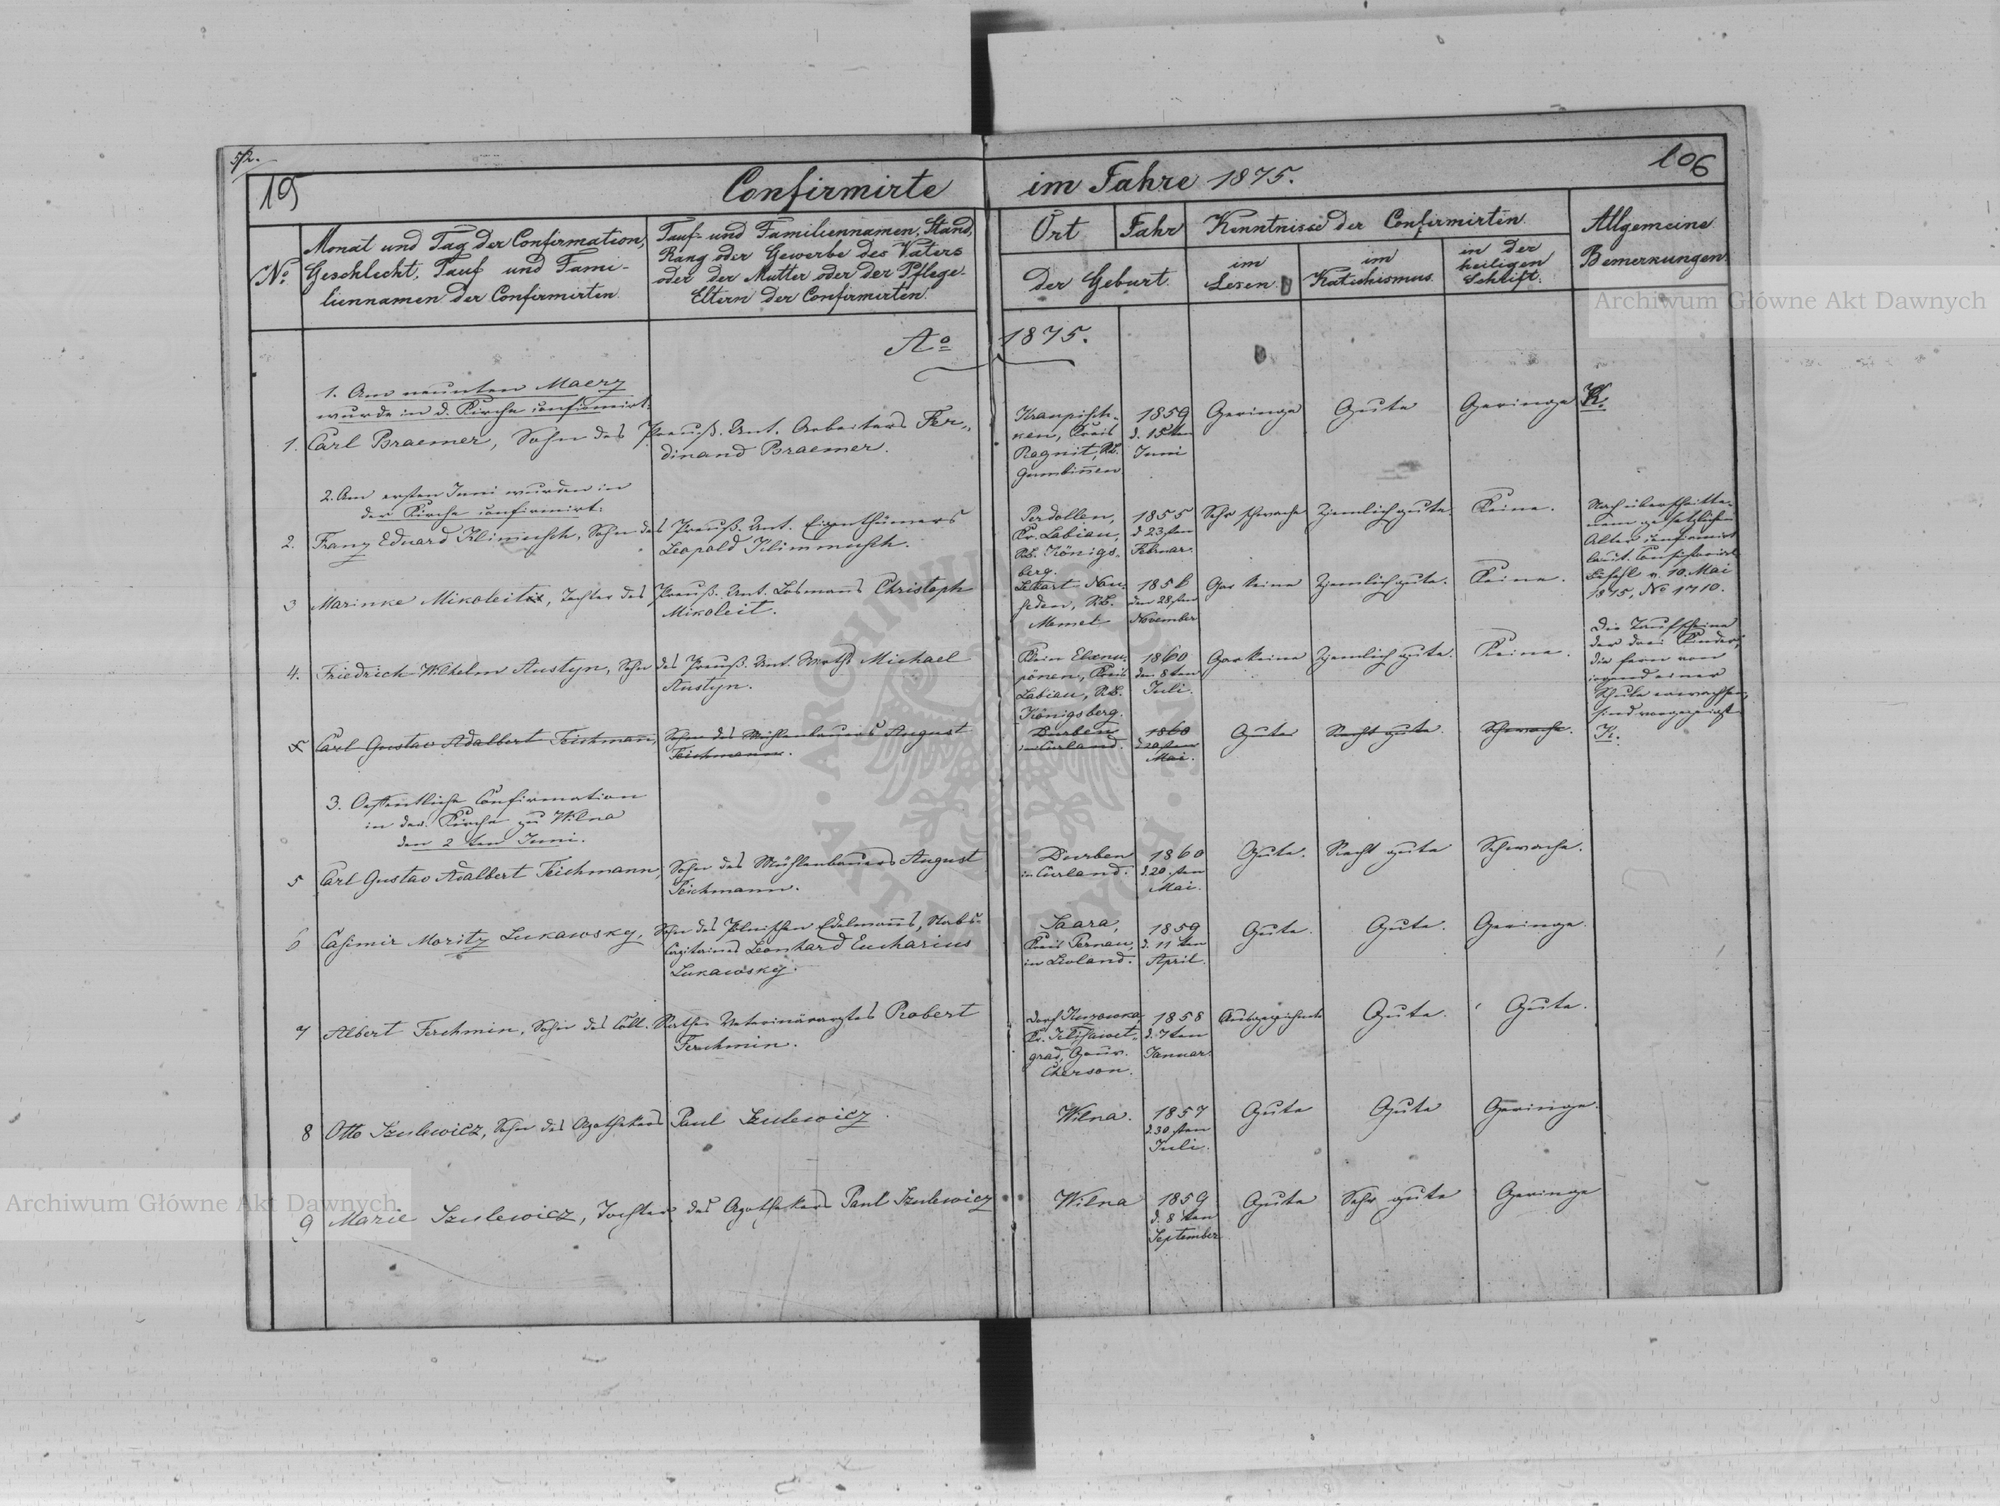 52.
105
Confirmirte im Jahre 1875.
106
No.
Monat und Tag der Confirmation,
Geschlecht, Tauf und Fami-
liennamen der Confirmirten.
Tauf- und Familiennamen, Stand,
Rang oder Gewerbe des Vaters
oder der Mutter oder der Pflege-
Eltern der Confirmirten.
Ort
Jahr
der Geburt.
Kenntnisse der Confirmirten
im
Lesen.
im
Katechismus.
in der
heiligen
Schrift.
Allgemeine
Bemerkungen.
Ao 1875.
1. Am neunten Maerz
wurde in d. Kirche confirmirt:
1. Carl Braemer, Sohn des Preuß. Unt. Arbeiters Fer-
dinand Braemer.
Kraupisch-
ken, Kreis
Ragnit, RB.
Gumbinnen
1859
d. 15ten
Juni
Geringe
Gute
Geringe
K.
2. Am ersten Juni wurden in
der Kirche confirmirt:
2. Franz Eduard Klimusch, Sohn des Preuß. Unt. Eigenthümers
Leopold Klimmusch.
Perdollen,
Kr. Labiau,
RB. Königs-
berg.
1855
d 23sten
Februar.
Sehr schwache
Ziemlich gute.
Keine.
Nach überschritte-
nem gesetzlichen
Alter confirmirt
laut Consistorial
Befehl v. 10. Mai
1875, No 1710.
3 Marinke Mikoleit, Tochter des Preuß. Unt. Losmanns Christoph
Mikoleit.
RB.
Memel
185
den 28sten
November
Gar keine
Ziemlich gute.
Keine.
Die Taufscheine
der drei Kinder,
die fern von
irgend einer
Schule erwachsen,
sind vorgezeigt.
4. Friedrich Wilhelm Austyn, Sohn des Preuß. Unt. Wirths Michael
Austyn.
Klein
Kreis
Labiau, RB.
Königsberg.
1860
den 8ten
Juli.
Gar keine
Ziemlich gute.
Keine.
5 Carl Gustav Adalbert Teichmann, Sohn des Mühlenbauers August
Teichmann.
Durben
in Curland.
1860
d 20sten
Mai.
Gute
Recht gute.
Schwache.
K.
3. Oeffentliche Confirmation
in der Kirche zu Wilna
den 2ten Juni.
5 Carl Gustav Adalbert Teichmann, Sohn des Mühlenbauers August
Teichmann.
Durben
in Curland.
1860
d. 20.sten
Mai.
Gute.
Recht gute
Schwache.
6 Casimir Moritz Lukawsky, Sohn des Polnischen Edelmanns, Stabs-
Capitaines Leonhard Eucharius
Lukawsky.
Saara,
Kreis Pernau,
in Livland.
1859
d. 11ten
April.
Gute.
Gute.
Geringe.
7 Albert Ferchmin, Sohn des Coll. Raths Veterinärarztes Robert
Ferchmin.
Dorf
Kr. Elisawet-
grad, Gouv.
Cherson.
1858
d. 7ten
Januar.
Ausgezeichnete
Gute.
Gute.
8 Otto Szulewicz, Sohn des Apothekers Paul Szulewicz.
Wilna.
1857
d. 30sten
Juli.
Gute
Gute
Geringe.
9 Marie Szulewicz, Tochter des Apothekers Paul Szulewicz
Wilna
1859
d. 8ten
September
Gute
Sehr gute
Geringe
Archiwum Główne Akt Dawnych
Archiwum Główne Akt Dawnych